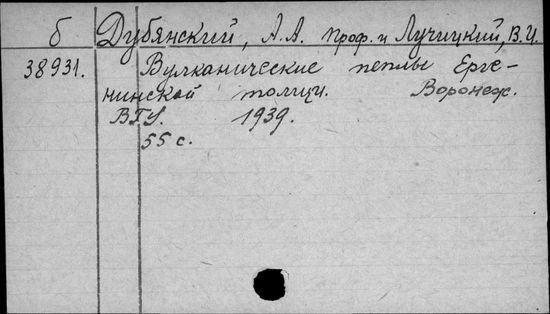 б Дубянский, А.А. проф. и Лучицкий, В.И.
38931. Вулканические пеплы Ерге-
нинской толщи. Воронеж.
ВГУ. 1939.
55 с.